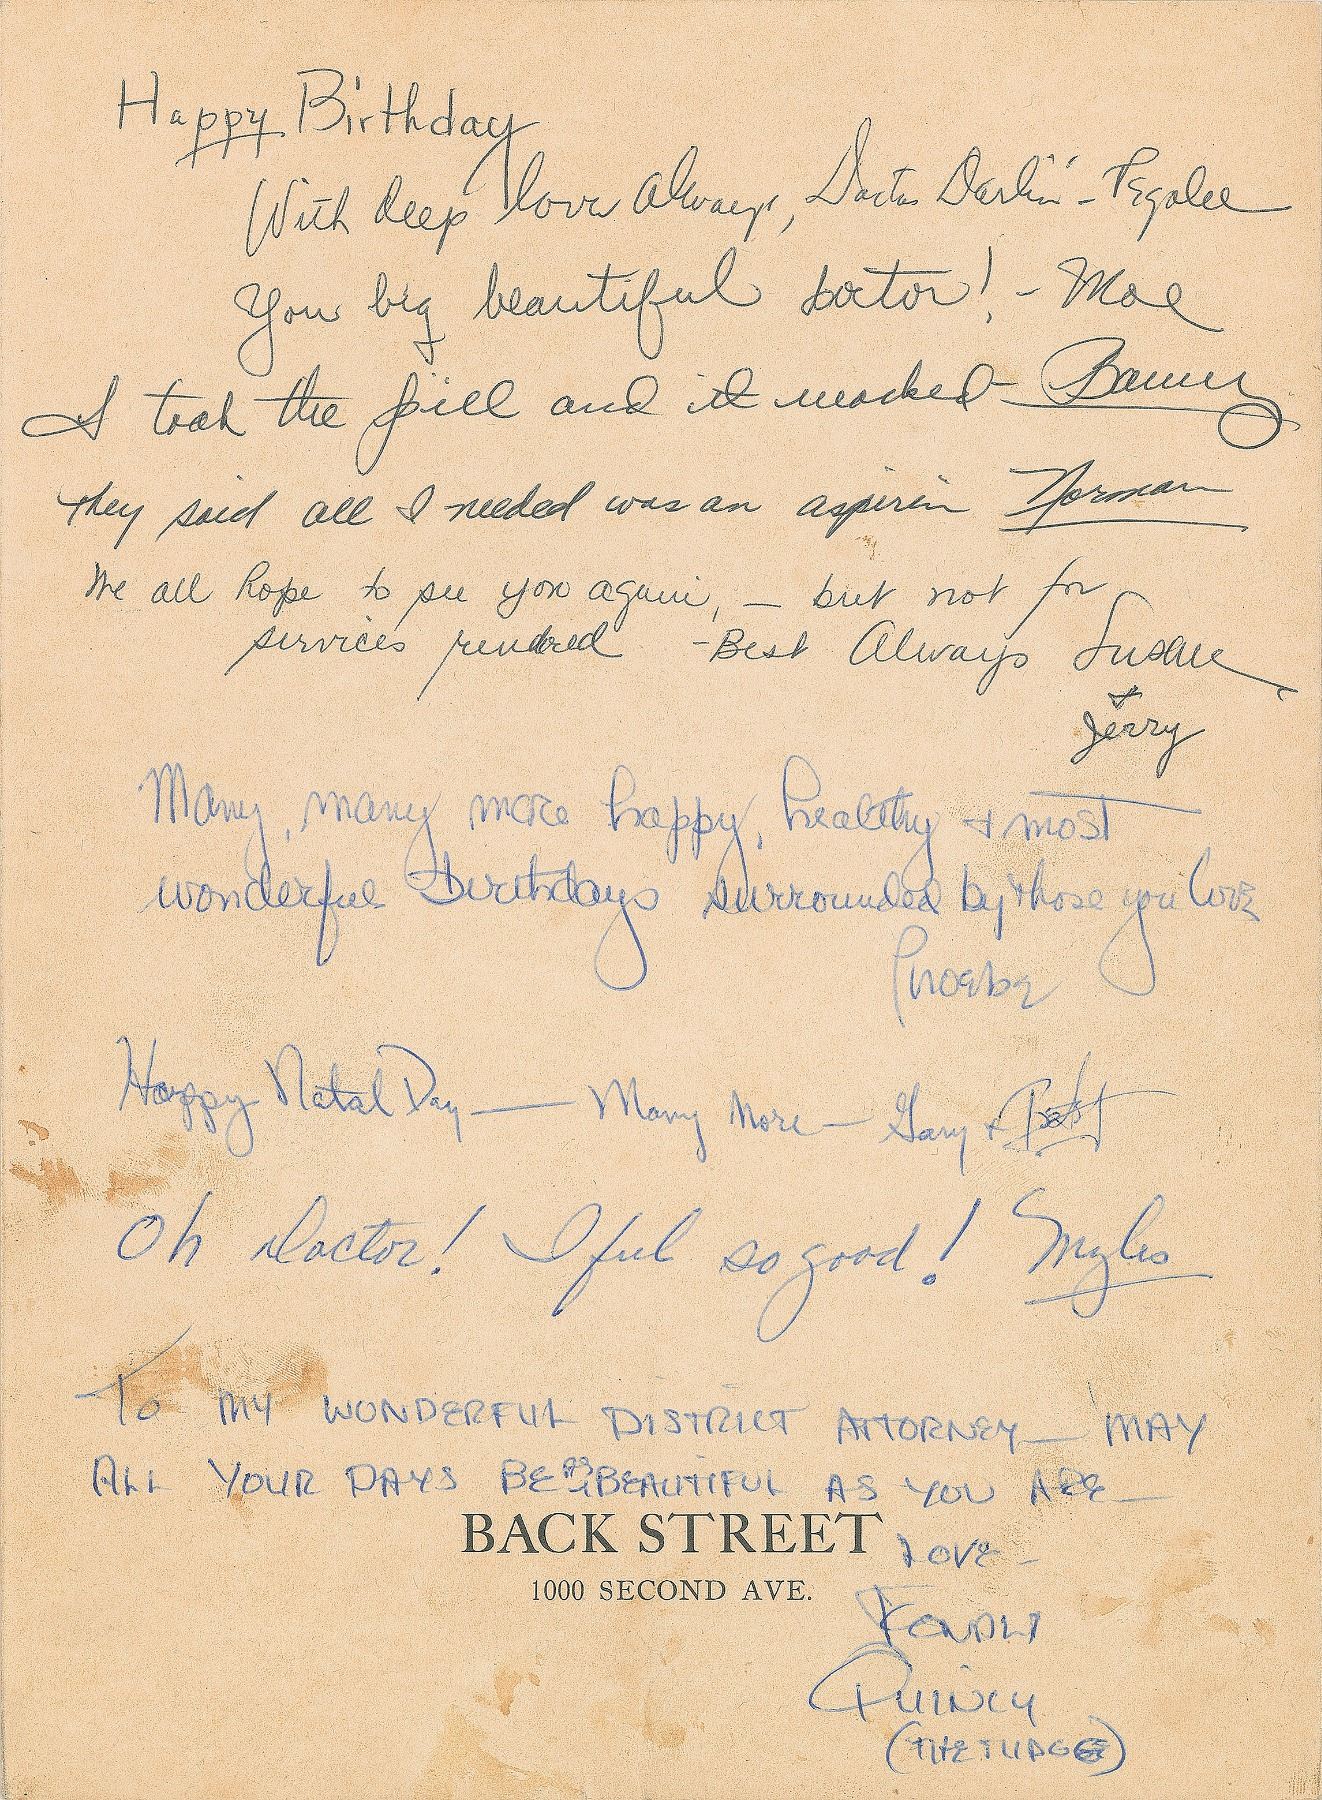 Happy Birthday
With deep love always, Doctor Darlin' - Pegalee
You big beautiful doctor! - Moe
I took the pill and it worked -
They said all I needed was an aspirin Norman
We all hope to see you again, - but not for
services rendred - Best Always Susan
+
Jerry
Many, many more happy, healthy + most
wonderful birthdays surrounded by those you love
Phoebe
Happy Natal Day — Many More — Gary +
Oh Doctor! I feel so good! Myles
To MY WONDERFUL DISTRICT ATTORNEY — MAY
ALL YOUR DAYS BE AS BEAUTIFUL AS YOU ARE —
BACK STREET
LOVE -
1000 SECOND AVE.
FONDLY
QUINCY
(THE JUDGE)